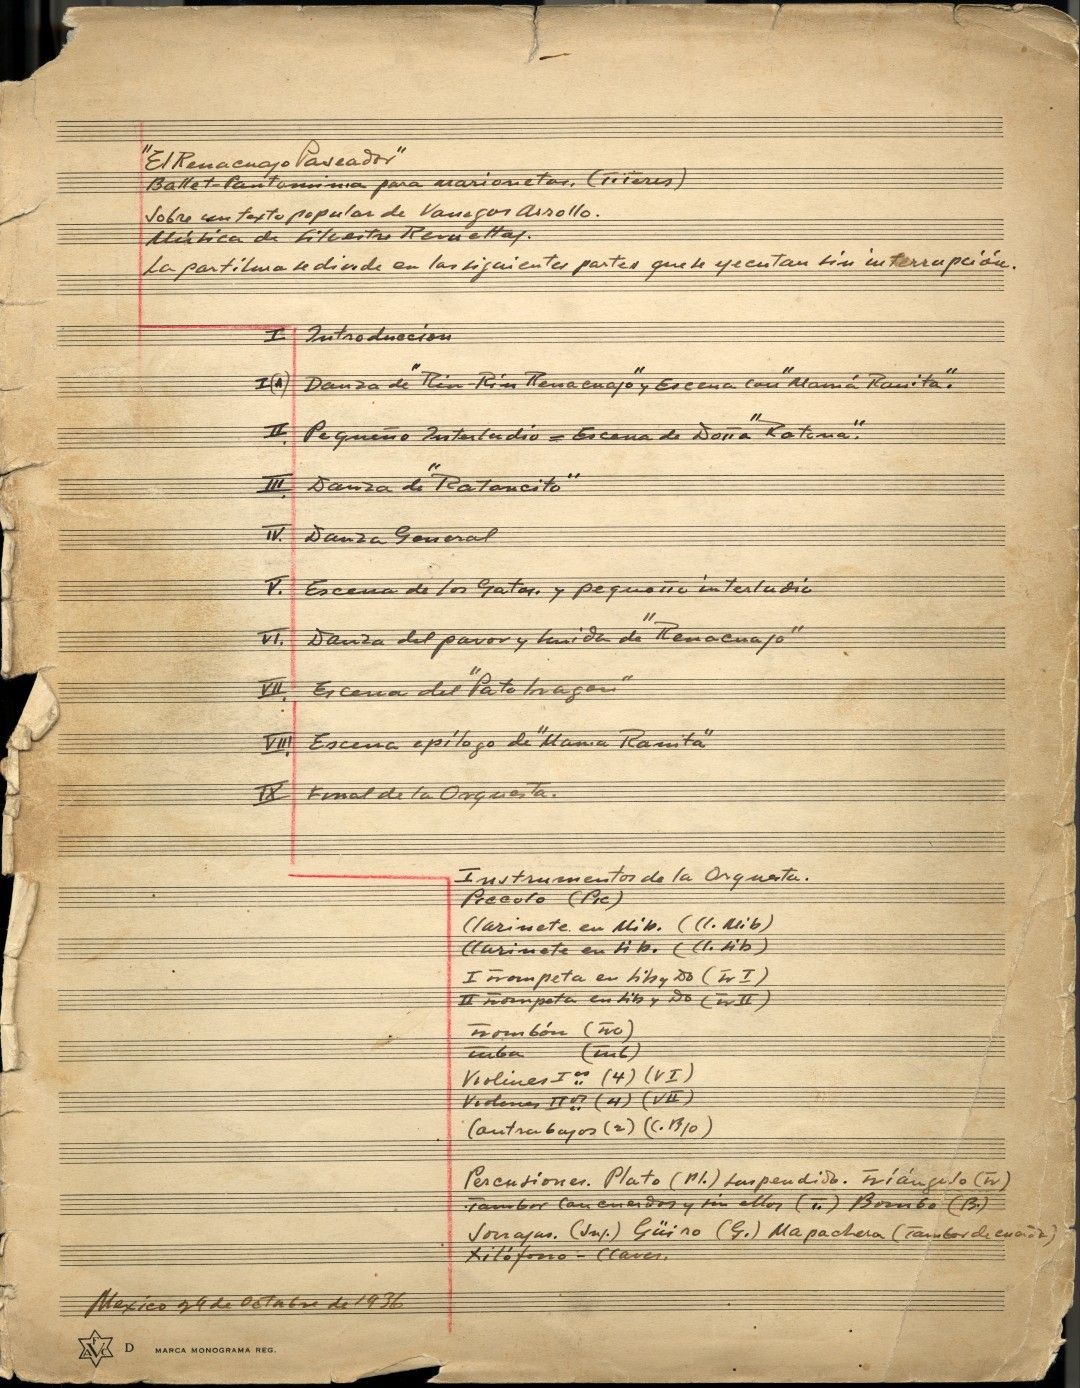 "El Renacuajo Paseador"
Ballet-Pantomima para marionetas. (Títeres)
Sobre un texto popular de Vanegas Arrollo.
Música de Silvestre Revueltas.
La partitura se divide en las siguientes partes que se ejecutan sin interrupción.
I Introduccion
I(A) Danza de "Rin-Rin Renacuajo" y Escena con "Mamá Ranita".
II. Pequeño Interludio = Escena de Doña "Ratona".
III. Danza de "Ratoncito"
IV. Danza General
V. Escena de los Gatos. y pequeño interludio
VI. Danza del pavor y huida de "Renacuajo"
VII. Escena del "Pato tragon"
VIII. Escena epílogo de "Mama Ranita"
IX Final de la Orquesta.
Instrumentos de la Orquesta.
Piccolo (Pic)
Clarinete en Mib. (Cl. Mib)
Clarinete en Sib. (Cl. Sib)
I Trompeta en Sib y Do (Tr I)
II Trompeta en Sib y Do (Tr II)
Trombón (Tro)
Tuba (Tub)
Violines I os (4) (VI)
Violines II os (4) (VII)
Contrabajos (2) (C. B/o)
Percusiones. Plato (Pl.) suspendido. Triángulo (Tr)
Tambor con cuerdas y sin ellas (T.) Bombo (B.)
Sonajas. (Snj.) Güiro (G.) Mapachera (Tambor de cuña)
Xilófono - Claves.
Mexico 4 de Octubre de 1936
D MARCA MONOGRAMA REG.